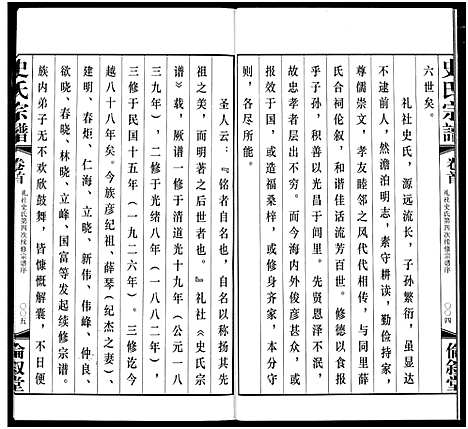 史氏宗譜
卷首
礼社史氏第四次续修宗谱序
〇〇四
倫叙堂
六世矣。
礼社史氏，源远流长，子孙繁衍，虽显达
不逮前人，然澹泊明志，素守耕读，勤俭持家，
尊儒崇文，孝友睦邻之风代代相传，与同里薛
氏合祠伦叙，和谐佳话流芳百世。修德以食报
乎子孙，积善以光昌于闾里。先贤恩泽不泯，
故忠孝者层出不穷，而今海内外俊彦甚众，或
报效于国，或造福桑梓，或修身齐家，本分守
则，各尽所能。
圣人云：『铭者自名也，自名以称扬其先
祖之美，而明著之后世者也。』礼社《史氏宗
谱》甲戌，厥谱一修于清道光十九年（公元一八
三九年），二修于光绪八年（一八八二年），
三修于民国十五年（一九二六年）。三修迄今
越八十八年矣。今族彦纪祖、薛琴（纪杰之妻）、
建明、春炬、仁海、立晓、新伟、伟峰、仲良、
欲晓、春晓、林晓、立峰、国富等发起续修宗谱。
族内弟子无不欢欣鼓舞，皆慷慨解囊，不日便
史氏宗譜
卷首
礼社史氏第四次续修宗谱序
〇〇五
倫叙堂